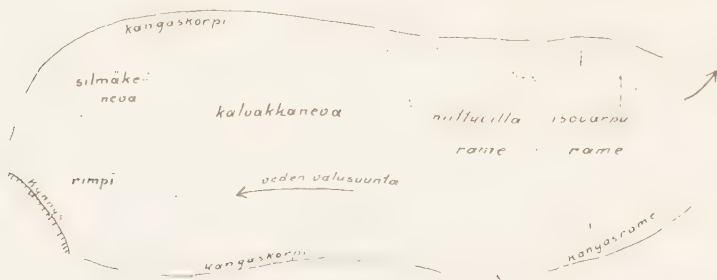 kangaskorpi
silmäke-
neva
kalvakkaneva
niittyvilla
räme
isovarpu
räme
rimpi
veden valusuunta
Kynnys
kangaskorpi
kangasräme